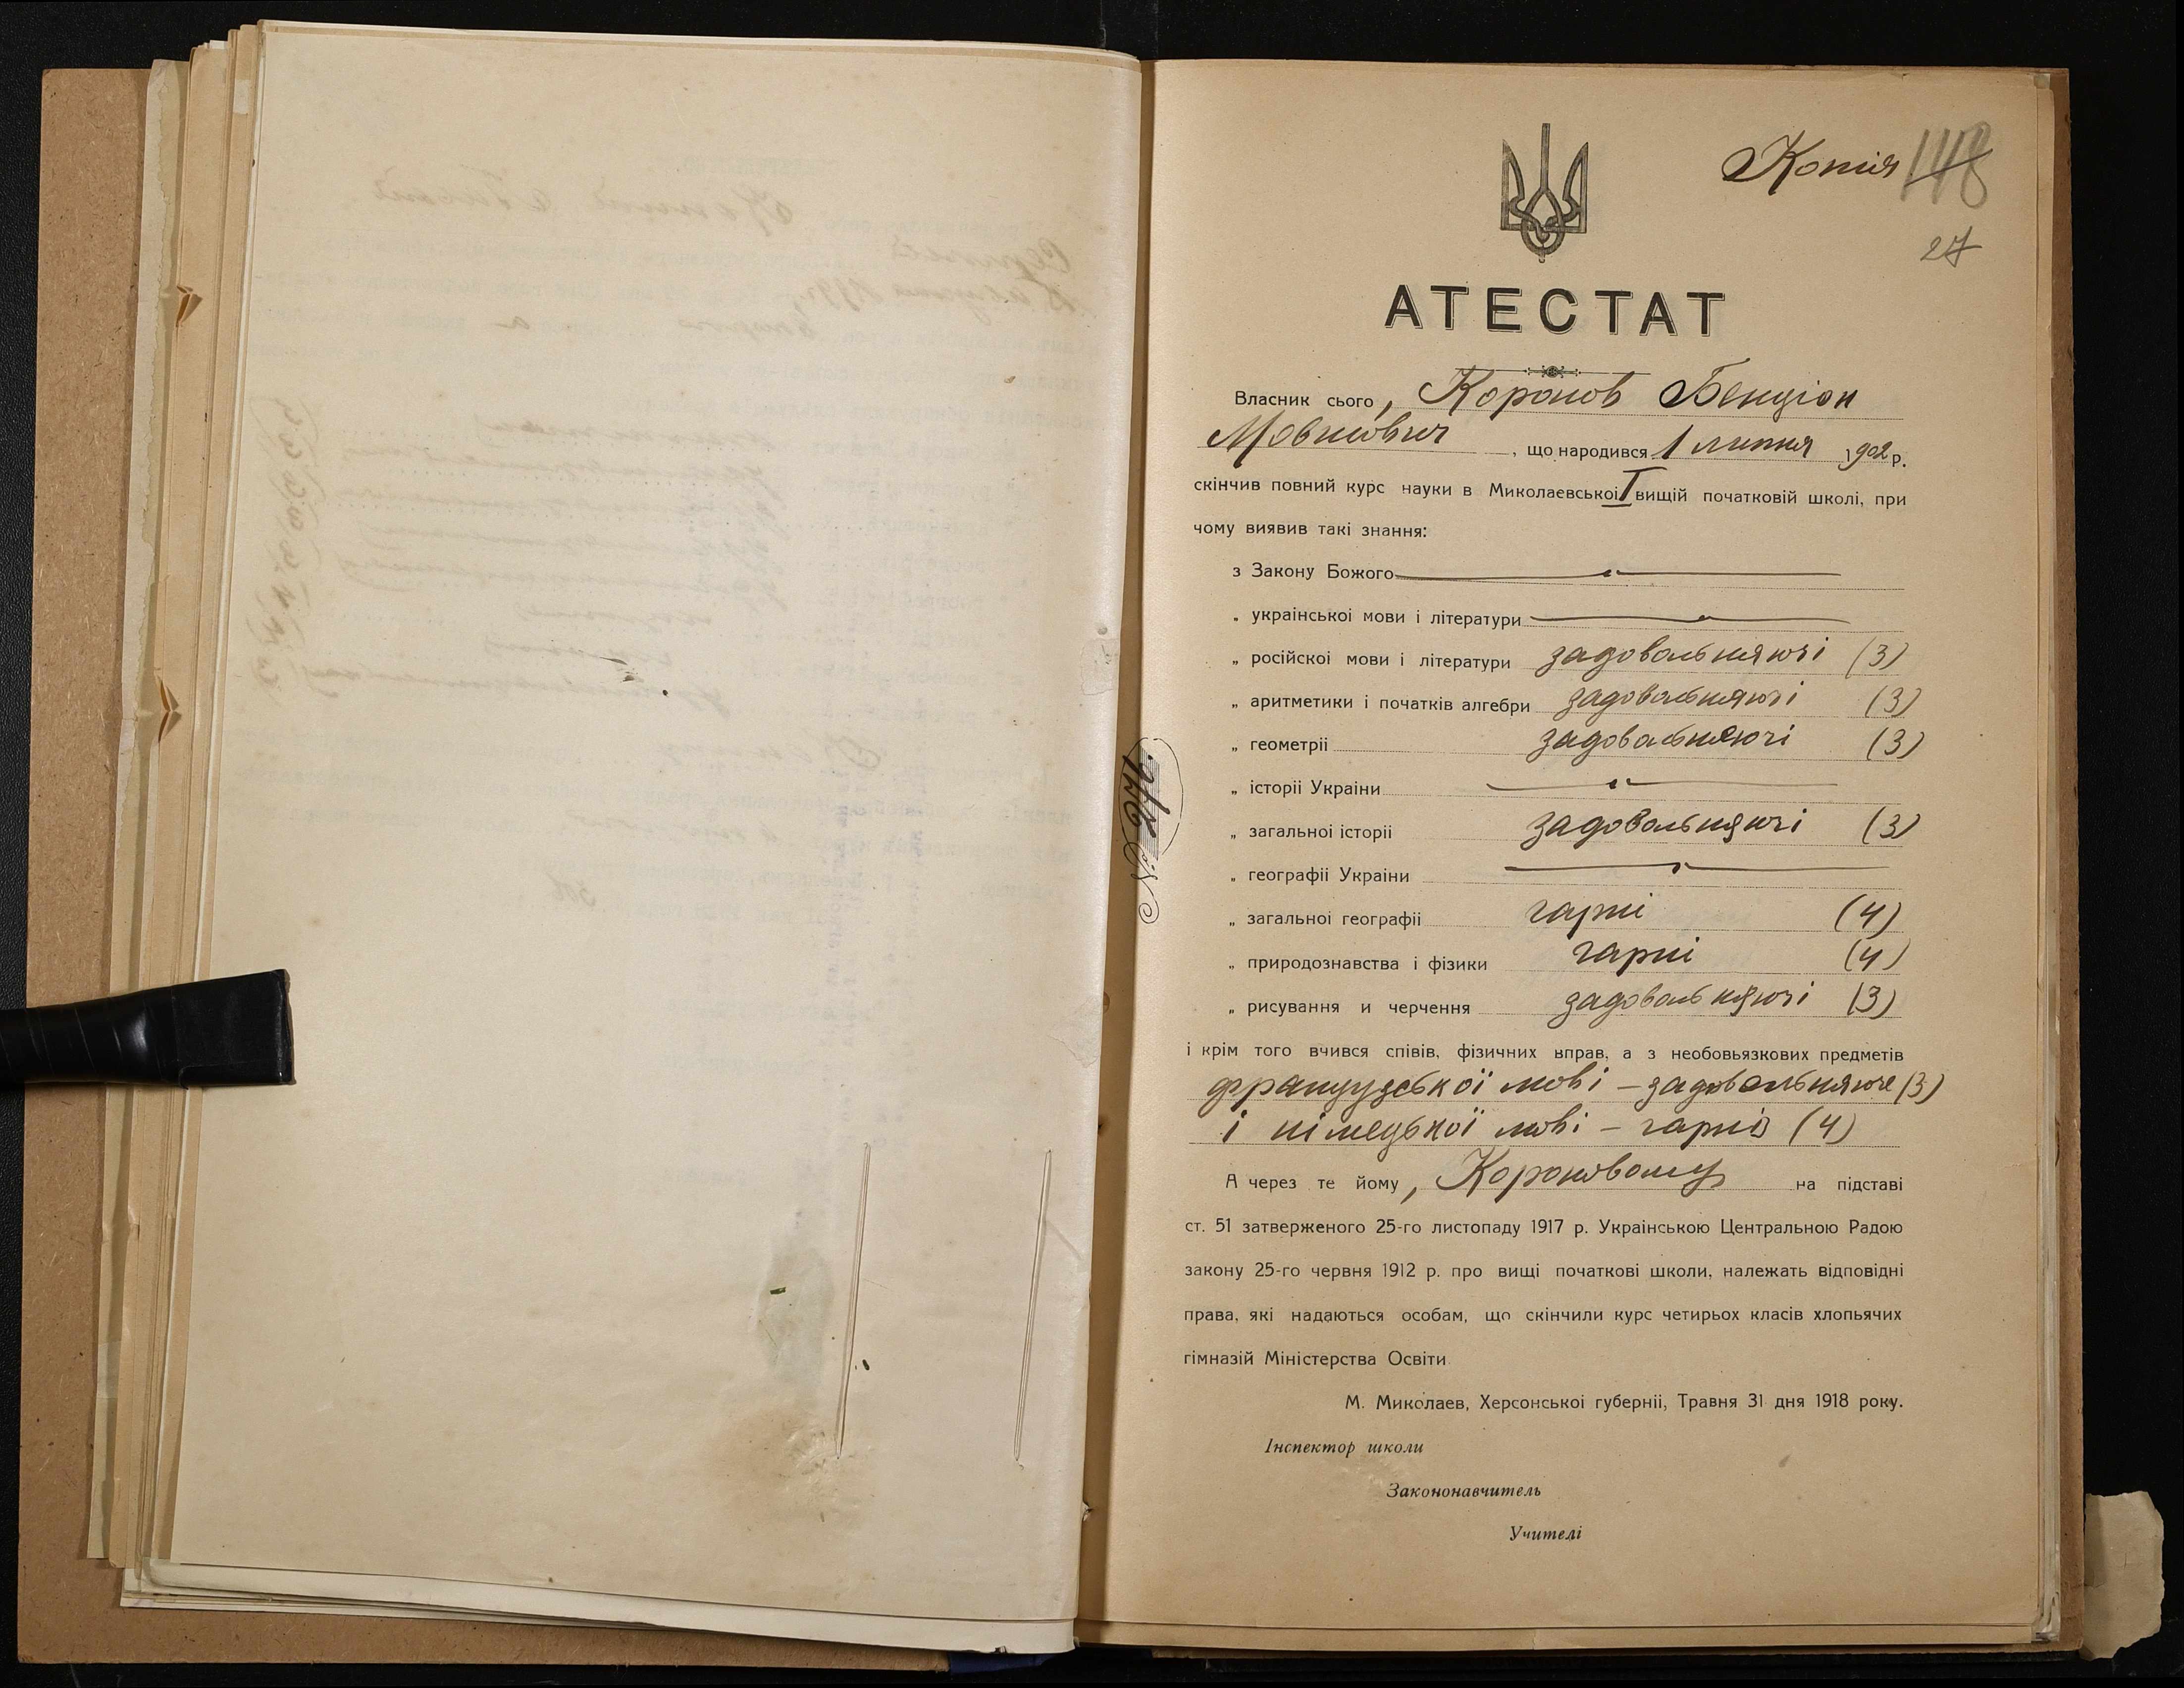 Копія
148
27
АТЕСТАТ
Власник сього, Коронов Бенціон
Мовшович, що народився 1 липня 1902 р.
скінчив повний курс науки в Миколаевськоі I вищій початковій школі, при
чому виявив такі знання:
з Закону Божого
„ украінськоі мови і літератури
„ російскоі мови і літератури задовольняючі (3)
„ аритметики і початків алгебри задовольняючі (3)
„ геометріі задовольняючі (3)
„ історіі Украіни
„ загальноі історіі задовольняючі (3)
„ географіі Украіни
„ загальноі географіі гарні (4)
„ природознавства і фізики гарні (4)
„ рисування и черчення задовольняючі (3)
і крім того вчився співів, фізичних вправ, а з необовьязкових предметів
французської мові – задовольняюче (3)
і німецької мові – гарнів (4)
А через те йому, Короновому на підставі
ст. 51 затверженого 25-го листопаду 1917 р. Украінською Центральною Радою
закону 25-го червня 1912 р. про вищі початкові школи, належать відповідні
права, які надаються особам, що скінчили курс четирьох класів хлопьячих
гімназій Міністерства Освіти.
М. Миколаев, Херсонськоі губерніі, Травня 31 дня 1918 року.
Інспектор школи
Закононавчитель
Учителі
№ 276.